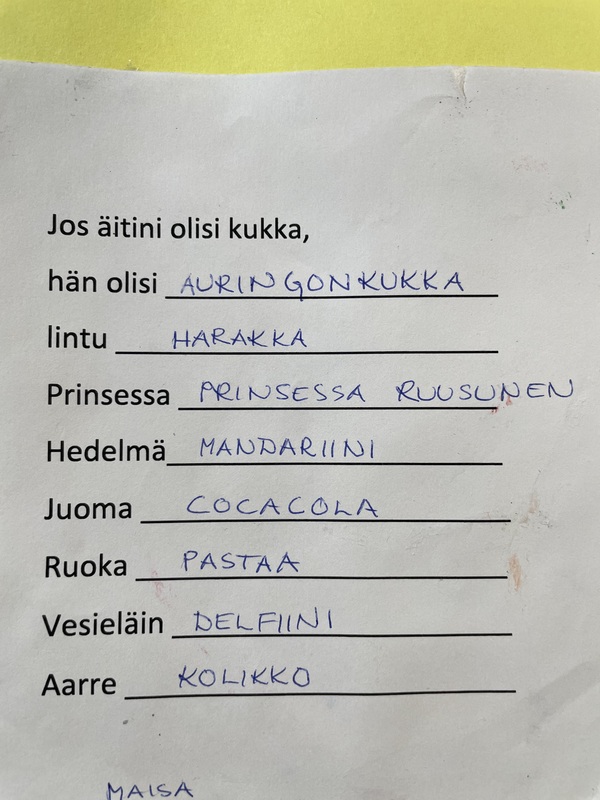 Jos äitini olisi kukka,
hän olisi AURINGONKUKKA
lintu HARAKKA
Prinsessa PRINSESSA RUUSUNEN
Hedelmä MANDARIINI
Juoma COCACOLA
Ruoka PASTAA
Vesieläin DELFIINI
Aarre KOLIKKO
MAISA